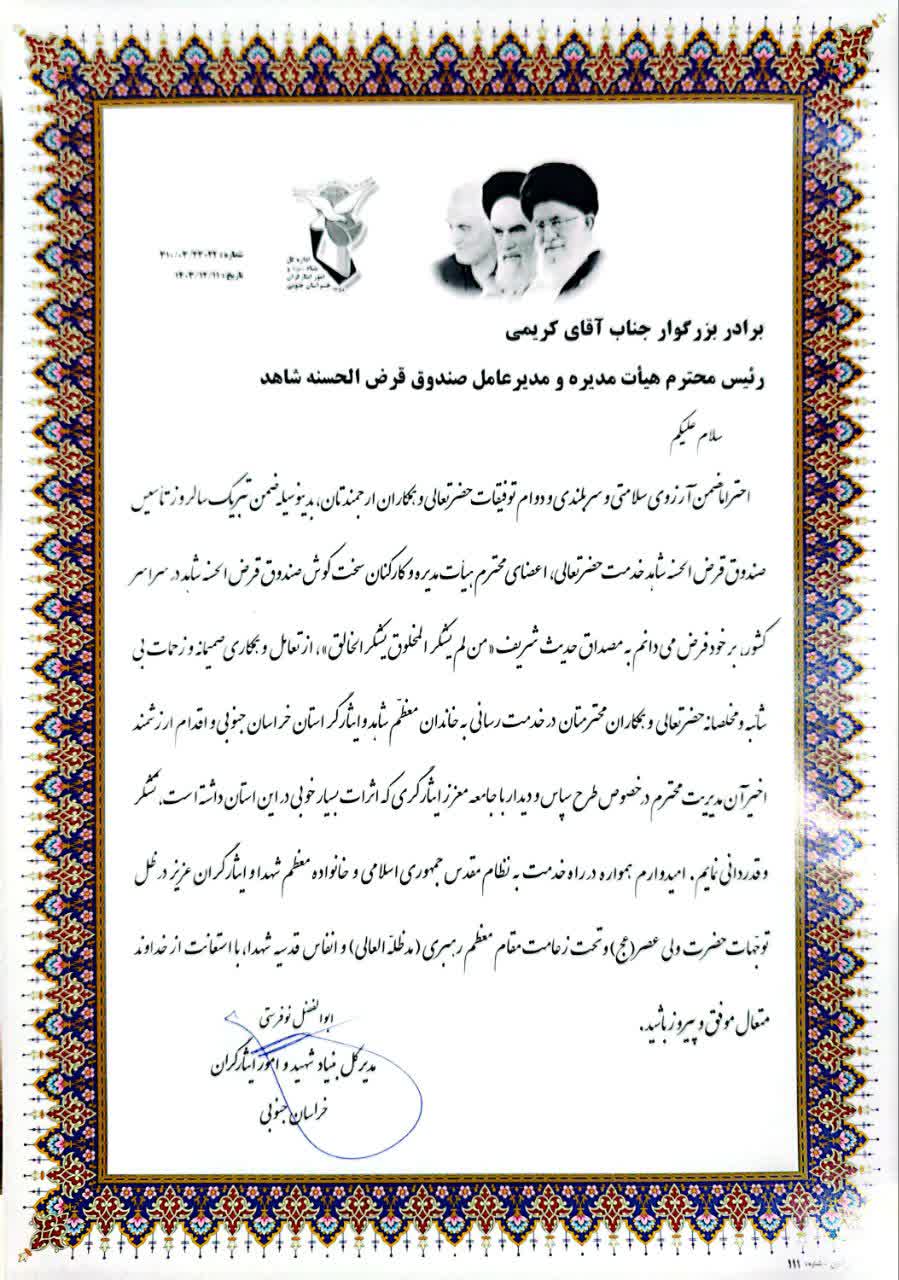 شماره: ۳۱۰/۰۳/۲۳۰۲۲
تاریخ: ۱۴۰۳/۱۲/۱۱
اداره کل
بنیاد شهید و
امور ایثارگران
خراسان جنوبی
برادر بزرگوار جناب آقای کریمی
رئیس محترم هیأت مدیره و مدیرعامل صندوق قرض الحسنه شاهد
سلام علیکم
احتراماً ضمن آرزوی سلامتی و سربلندی و دوام توفیقات حضرتعالی و همکاران ارجمندتان، بدینوسیله ضمن تبریک سالروز تأسیس
صندوق قرض الحسنه شاهد خدمت حضرتعالی، اعضای محترم هیأت مدیره و کارکنان سخت کوش صندوق قرض الحسنه شاهد در سراسر
کشور، بر خود فرض می دانم به مصداق حدیث شریف «من لم یشکر المخلوق یشکر الخالق»، از تعامل و همکاری صمیمانه و زحمات بی
شائبه و مخلصانه حضرتعالی و همکاران محترمتان در خدمت رسانی به خاندان معظّم شاهد و ایثارگر استان خراسان جنوبی و اقدام ارزشمند
اخیر آن مدیریت محترم در خصوص طرح سپاس و دیدار با جامعه معزز ایثارگری که اثرات بسیار خوبی در این استان داشته است، تشکر
و قدردانی نمایم. امیدوارم همواره در راه خدمت به نظام مقدس جمهوری اسلامی و خانواده معظم شهدا و ایثارگران عزیز در ظل
توجّهات حضرت ولی عصر(عج) و تحت زعامت مقام معظم رهبری (مدظلّه العالی) و انفاس قدسیه شهدا، با استعانت از خداوند
متعال موفق و پیروز باشید.
ابوالفضل نوفرستی
مدیرکل بنیاد شهید و امور ایثارگران
خراسان جنوبی
۱۱۱